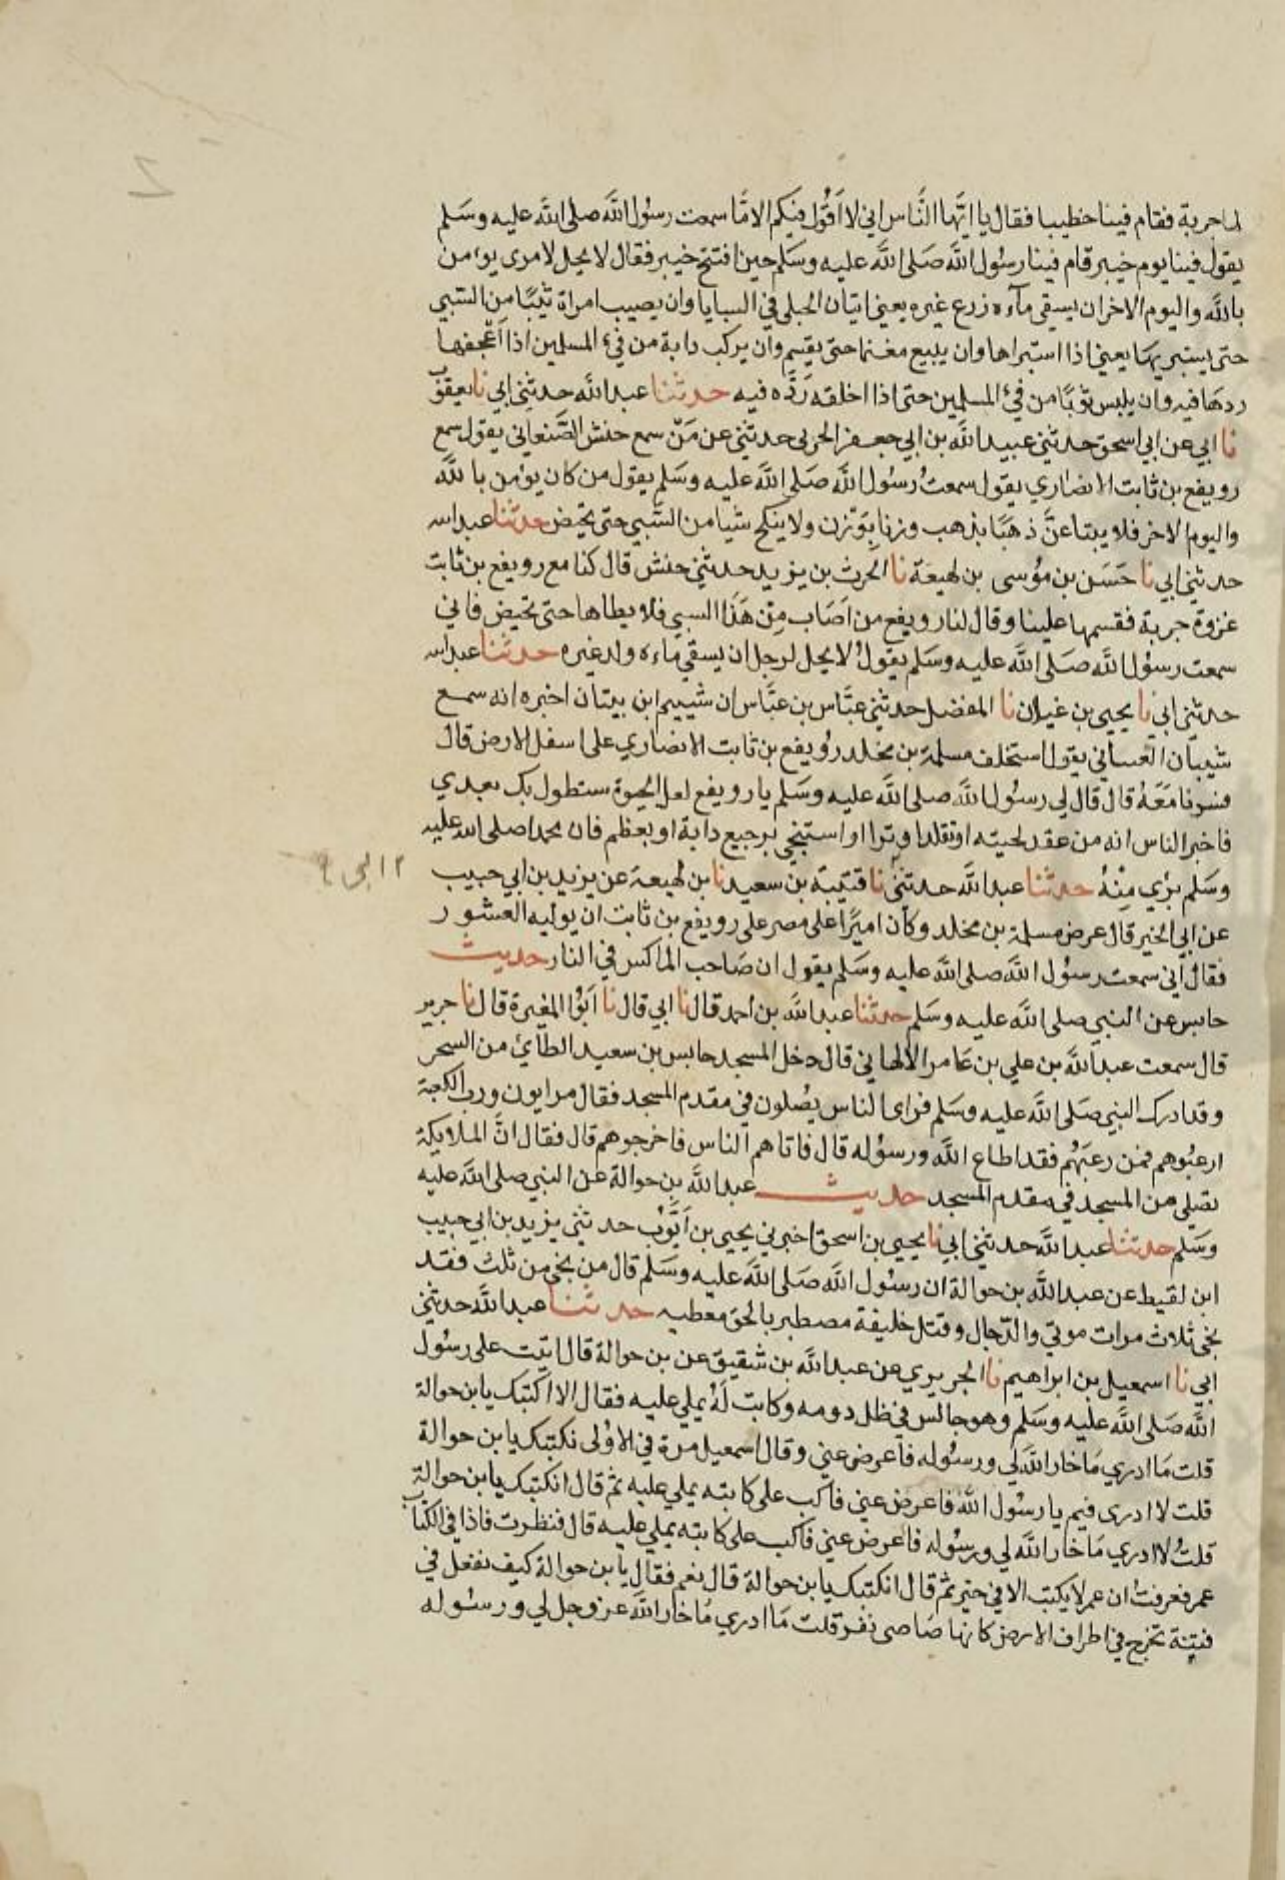 لها جربة فقام فينا خطيبا فقال يا ايها النَّاس اني لا اقول فيكم الا ما سمعت رسول الله صلى الله عليه وسلم
يقول فينا يوم خيبر قام فينا رسول الله صلى الله عليه وسلم حين افتتح خيبر فقال لا يحل لامرئ يومن
بالله واليوم الاخر ان يسقي مآءه زرع غيره يعني اتيان الحبلى في السبايا وان يصيب امراة ثيبًا من السبي
حتى يستبريها يعني اذا استبراها وان يبيع مغنما حتى يقسم وان يركب دابة من فيء المسلمين اذا اعجفها
ردها فيه وان يلبس ثوبًا من فيء المسلمين حتى اذا اخلقه رَدَّه فيه حدثنا عبد الله حدثني ابي نا يعقوب
نا ابي عن ابي اسحق حدثني عبيد الله بن ابي جعفر الحربي حدثني عن مَنْ سمع حنش الصَّنعاني يقول سمع
رويفع بن ثابت الانصاري يقول سمعتُ رسول الله صلى الله عليه وسلم يقول من كان يومن بالله
واليوم الاخر فلا يبتاعنَّ ذهبًا بذهب وزنا بوزن ولا ينكح شيا من السَّبي حتى تحيض حدثنا عبد الله
حدثني ابي نا حَسَن بن مؤسى بن لهيعَة نا الحرث بن يزيد حدثني حنش قال كنا مع رويفع بن ثابت
غزوة جربة فقسمها علينا وقال لنا رويفع من اصاب مِنْ هَذَا السبي فلا يطاها حتى تحيض فاني
سمعت رسول الله صلى الله عليه وسلم يقول لا يحل لرجل ان يسقي ماءه ولد غيره حدثنا عبد الله
حدثني ابي نا يحيى بن غيلان نا المفضل حدثني عبَّاس بن عبَّاس ان شييم ابن بيتان اخبره انه سمع
شيبان الغساني يقول استخلف مسلمة بن مخلد رويفع بن ثابت الانصاري على اسفل الارض قال
فسرنا مَعَهُ قال قال لي رسول الله صلى الله عليه وسلم يا رويفع لعل الحيوة ستطول بك بعدي
فاخبر الناس انه من عقد لحيته او تقلد وترا او استنجى برجيع دابة او بعظم فان محمدا صلى الله عليه
وسَلم بَرِي مِنْهُ حدثنا عبد الله حدثني نا قتيبة بن سعيد نا بن لهيعة عن يزيد بن ابي حبيب
عن ابي الخير قال عرض مسلمة بن مخلد وكان اميرًا على مصر على رويفع بن ثابت ان يوليه العشور
فقال اني سمعت رسول الله صلى الله عليه وسلم يقول ان صَاحب الماكس في النار حديث
حابس عن النبي صلى الله عليه وسَلم حدثنا عبد الله بن احمد قال نا ابي قال نا ابو المغيرة قال نا جرير
قال سمعت عبد الله بن علي بن عَامر الالهاني قال دخل المسجد حابس بن سعيد الطآئي من السحر
وقد ادرك النبي صلى الله عليه وسلم فراى الناس يصلون في مقدم المسجد فقال مرايون ورب الكعبة
ارعبوهم فمن رعبَهُم فقد اطاع الله ورسوله قال فاتاهم الناس فاخرجوهم قال فقال انَّ الملايكة
تصلي من المسجد في مقدم المسجد حديث عبد الله بن حوالة عن النبي صلى الله عليه
وسَلم حدثنا عبد الله حدثني ابي نا يحيى بن اسحق اخبرني يحيى بن ايوب حدثني يزيد بن ابي حبيب
ابن لقيط عن عبد الله بن حوالة ان رسول الله صلى الله عليه وسلم قال من نجى من ثلث فقد
نجى ثلاث مرات موتي والدّجال وقتل خليفة مصطبر بالحق معطيه حدثنا عبد الله حدثني
ابي نا اسمعيل بن ابراهيم نا الجريري عن عبد الله بن شقيق عن بن حوالة قال اتيت على رسول
الله صلى الله عليه وسلم وهو جالس في ظل دومه وكاتب لَهُ يملي عليه فقال الا اكتبك يابن حوالة
قلت مَا ادري مَا خار الله لي ورسوله فاعرض عني وقال اسمعيل مرة في الاولى نكتبك يابن حوالة
قلت لا ادرى فيم يا رسول الله فاعرض عني فاكب على كاتبه يملي عليه ثم قال انكتبك يابن حوالة
قلتُ لا ادري مَا خار الله لي ورسوله فاعرض عني فاكب على كاتبه يملي عليه قال فنظرت فاذا في الكتاب
عمر فعرفت ان عمر لا يكتب الا في خير ثم قال انكتبك يابن حوالة قال نعم فقال يابن حوالة كيف تفعل في
فتنة تخرج في اطراف الارض كانها صَاصى نفر قلت مَا ادري مَا خار الله عز وجل لي ورسوله